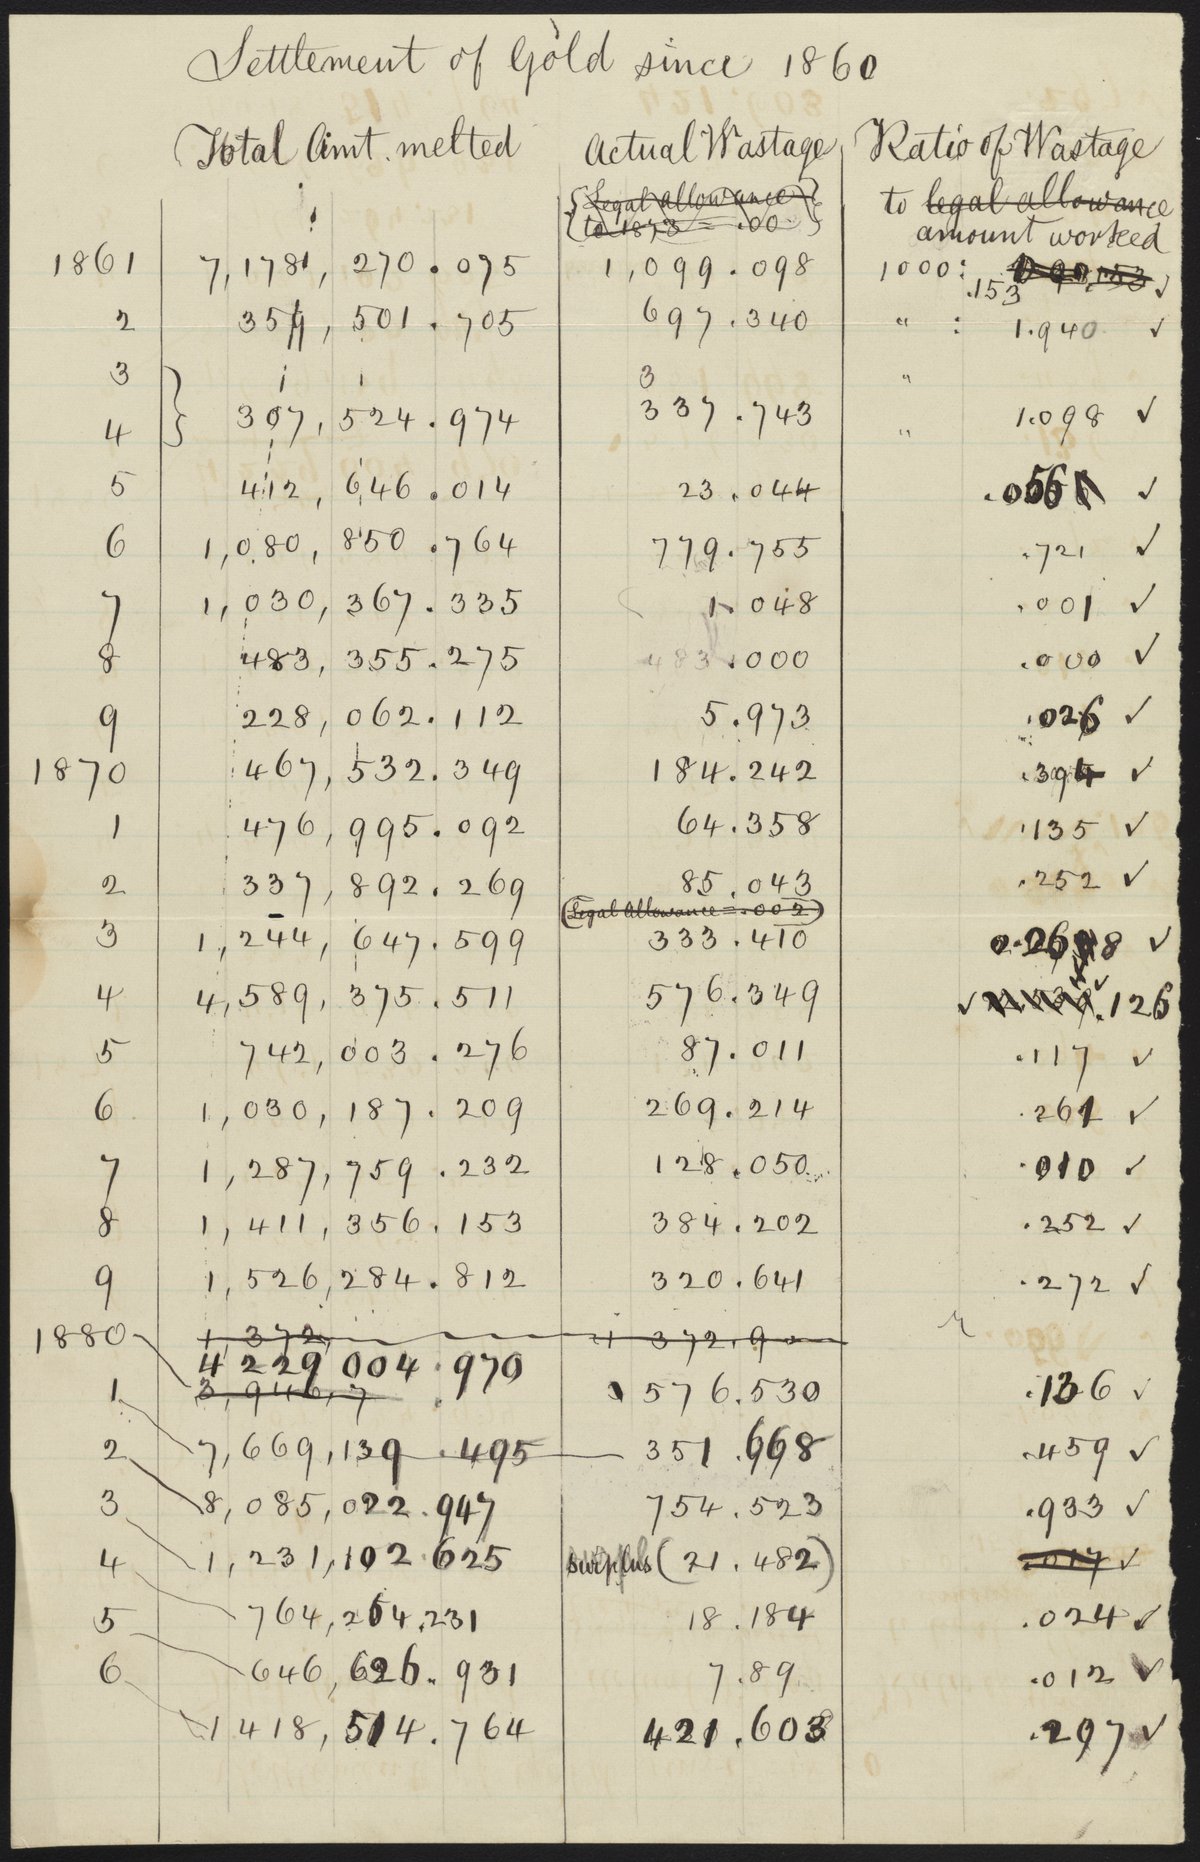 Settlement of Gold since 1860
Total Amt. melted Actual Wastage Ratio of Wastage
{Legal allowance} to legal allowance
{to 1873 = .00} amount worked
1861 7,178, 270.075 1,099.098 1000: .153 ✓
2 359, 501.705 697.340 " : 1.940 ✓
3 3 "
4 307, 524.974 337.743 " 1.098 ✓
5 412, 646.014 23.044 .056 ✓
6 1,080, 850.764 779.755 .721 ✓
7 1,030, 367.335 1.048 .001 ✓
8 483, 355.275 483.000 .000 ✓
9 228, 062.112 5.973 .026 ✓
1870 467, 532.349 184.242 .394 ✓
1 476, 995.092 64.358 .135 ✓
2 337, 892.269 85.043 .252 ✓
(Legal Allowance = .002)
3 1,244, 647.599 333.410 .268 ✓
4 4,589, 375.511 576.349 ✓ .126
5 742, 003.276 87.011 .117 ✓
6 1,030, 187.209 269.214 .261 ✓
7 1,287,759.232 128.050 .010 ✓
8 1,411,356.153 384.202 .252 ✓
9 1,526,284.812 320.641 .272 ✓
1880 1,372, 1 372.9
4 229 004.970
1 3,946,7 576.530 .136 ✓
2 7,669,139.495 351.668 .459 ✓
3 8,085,022.947 754.523 .933 ✓
4 1,231,102.625 surplus (21.482) .017 ✓
5 764,264.231 18.184 .024 ✓
6 646,626.931 7.89 .012 ✓
1 418, 514.764 421.603 .297 ✓